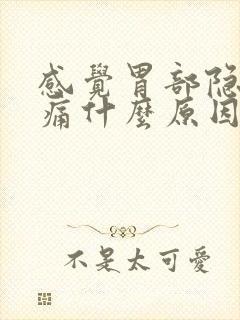 感覺胃部隐
痛什麼原因
不是太可愛